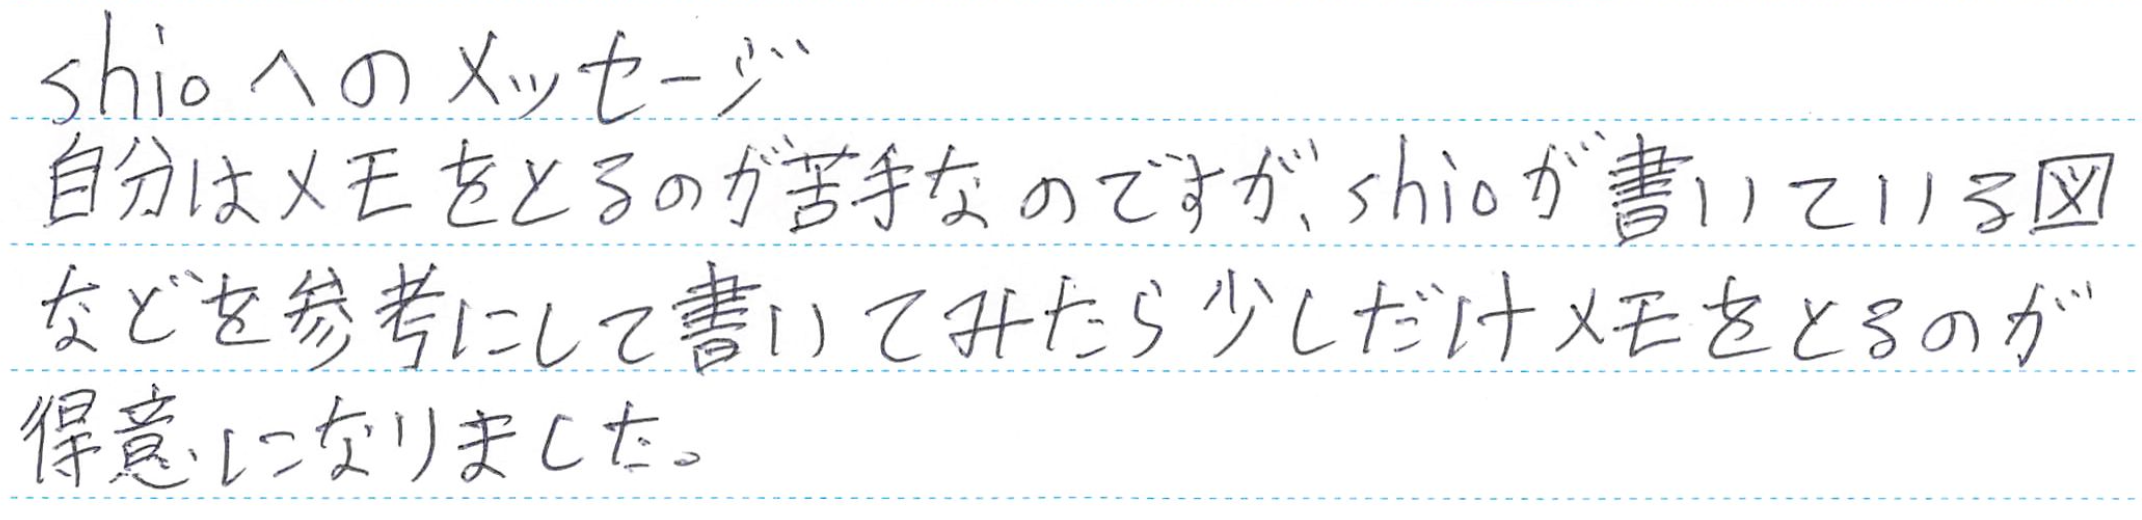 shioへのメッセージ
自分はメモをとるのが苦手なのですが、shioが書いている図
などを参考にして書いてみたら少しだけメモをとるのが
得意になりました。